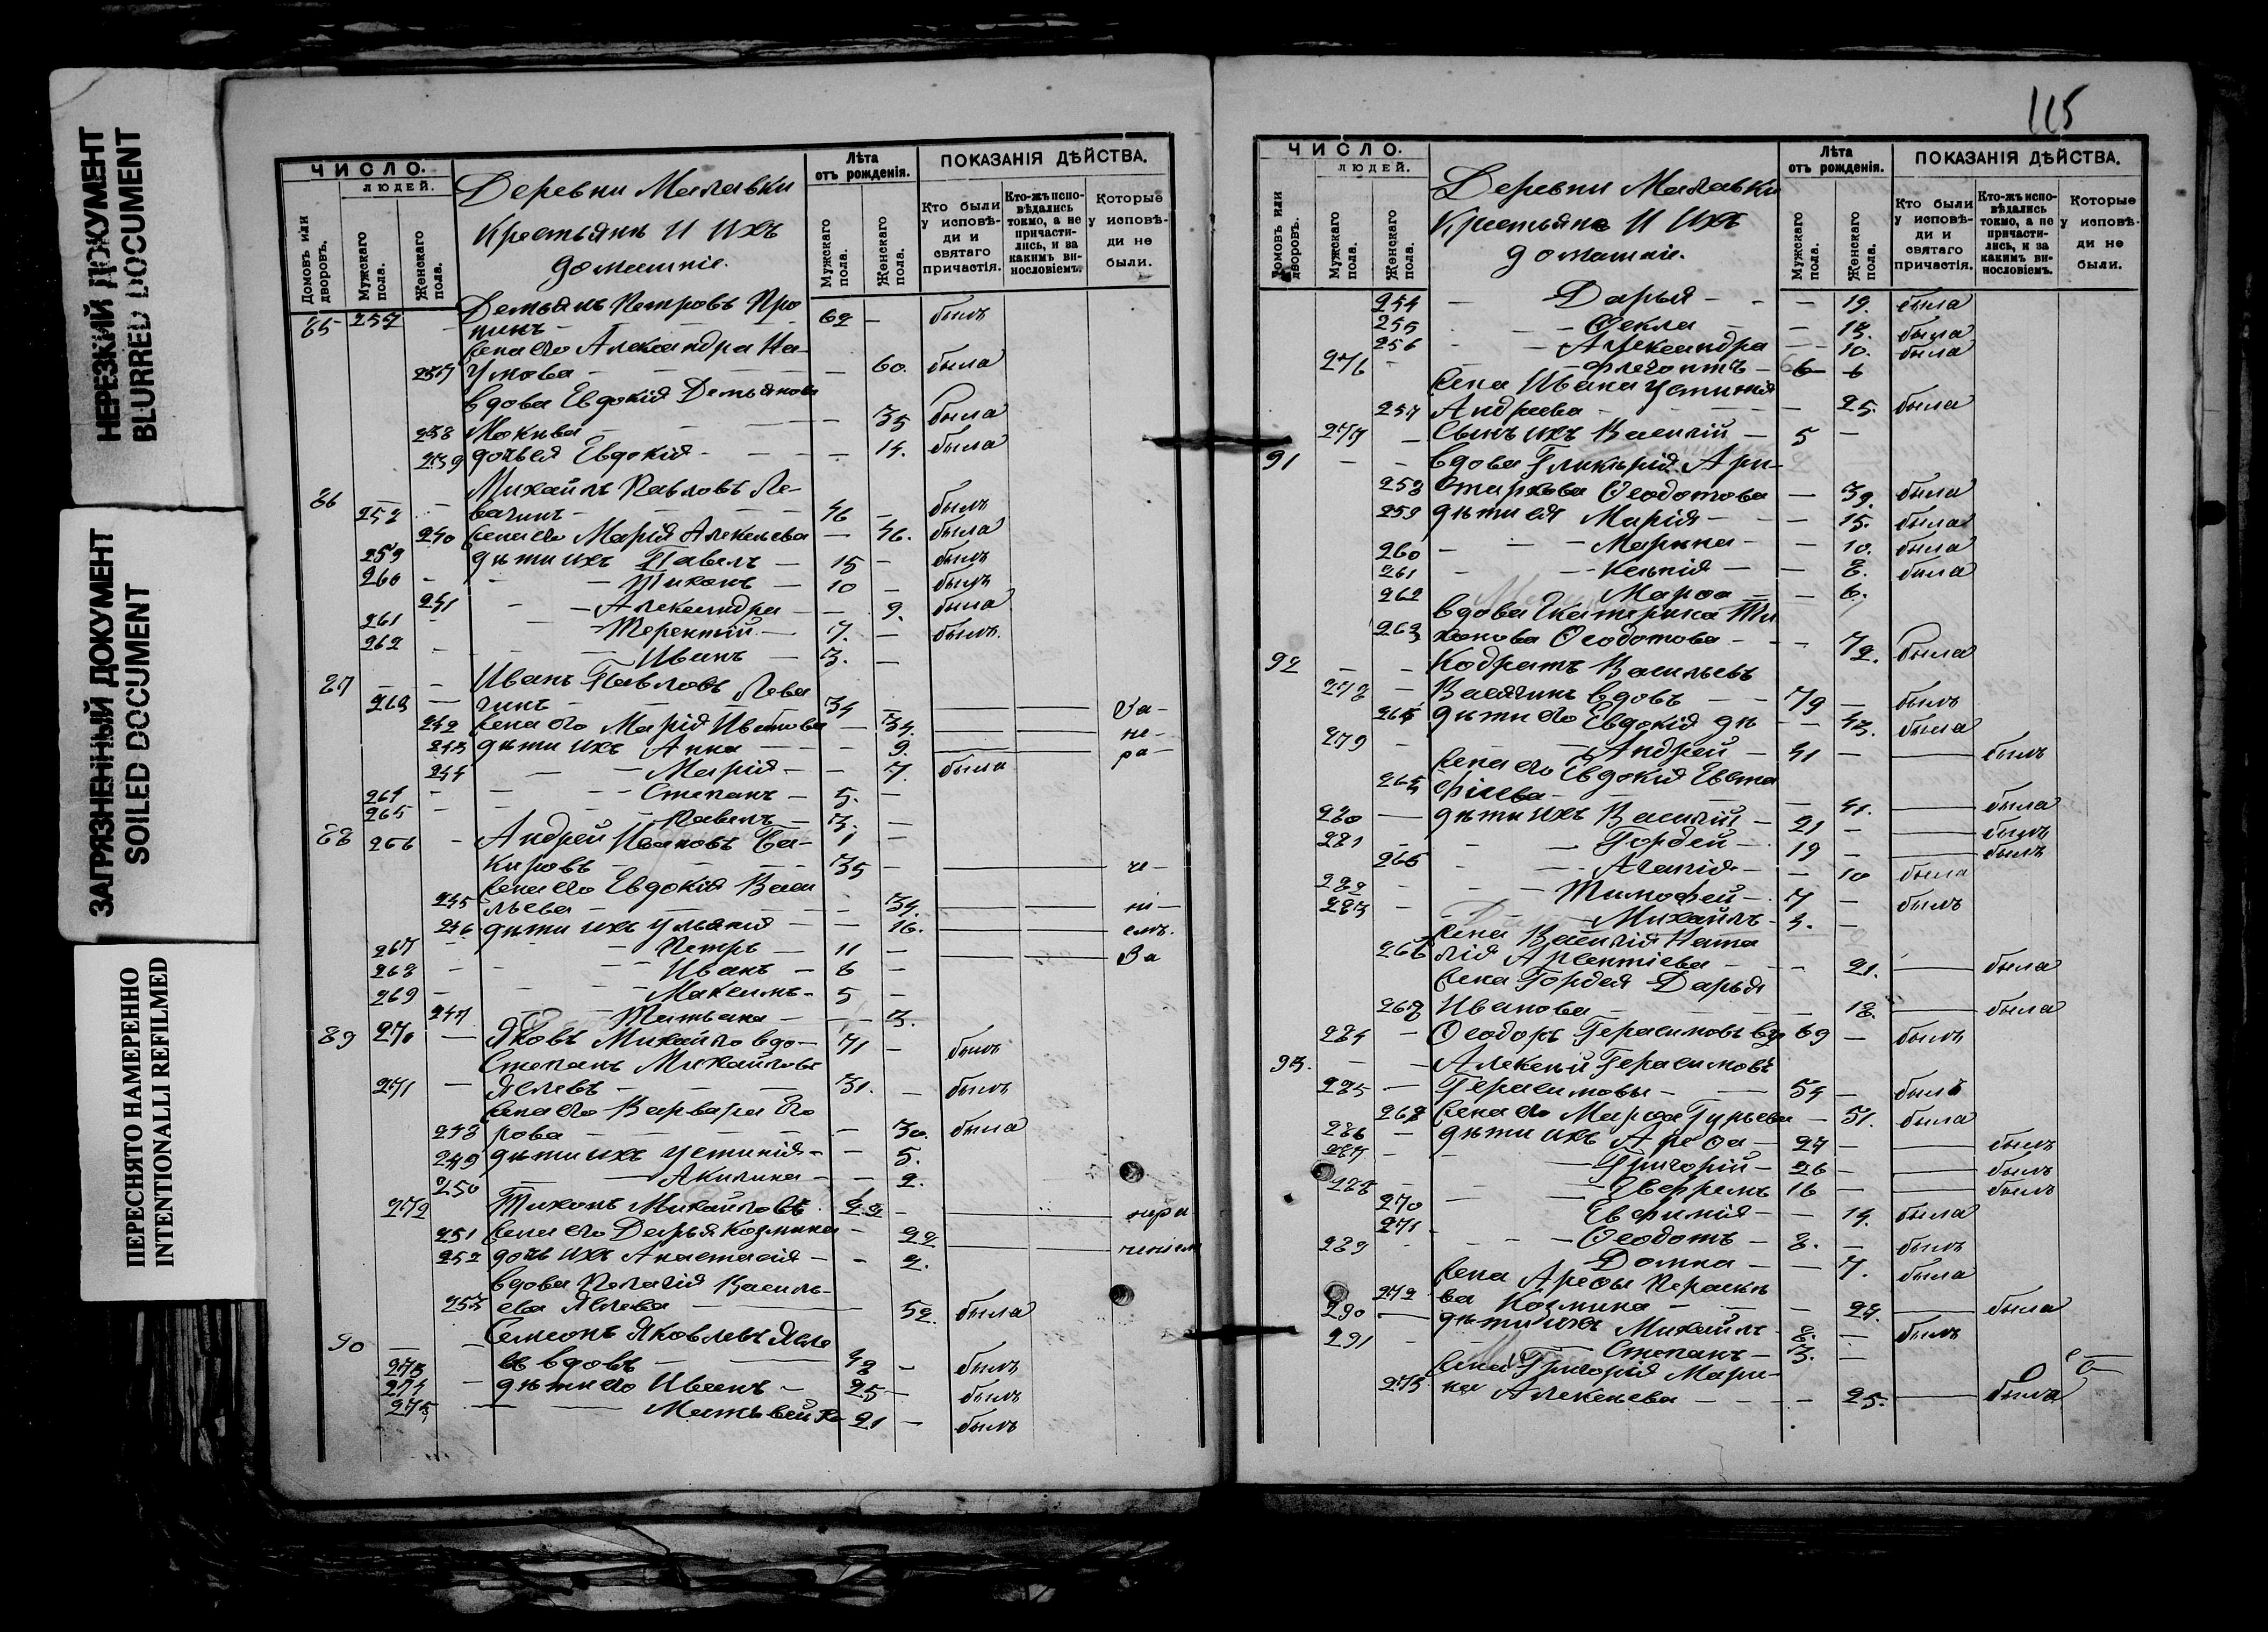 НЕРЕЗКИЙ ДОКУМЕНТ
BLURRED DOCUMENT
ЗАГРЯЗНЕННЫЙ ДОКУМЕНТ
SOILED DOCUMENT
ПЕРЕСНЯТО НАМЕРЕННО
INTENTIONALLI REFILMED
ЧИСЛО.
ЛЮДЕЙ.
Домовъ или дворовъ.
Мужскаго пола.
Женскаго пола.
Деревни Малавки
Крестьянъ и ихъ
домашніе.
Лѣта отъ рожденія.
Мужскаго пола.
Женскаго пола.
ПОКАЗАНІЯ ДѢЙСТВА.
Кто были у исповѣди и святаго причастія.
Кто-жъ исповѣдались токмо, а не причастились, и за какимъ винословіемъ.
Которые у исповѣди не были.
85 257 Демьянъ Петровъ Про
нинъ 62 былъ
жена его Александра На-
умова 60. была
вдова Евдокія Демьянова
238 Мокіева 35 была
239 дочь ея Евдокія 14. была
86 Михаилъ Павловъ Ле-
258 вачинъ 46 былъ
240 жена его Марія Алексѣева 46. была
259 дѣти ихъ Павелъ 15 былъ
260 Тихонъ 10 былъ
241 Александра 9. была
261 Терентій 7. былъ.
262 Иванъ 3.
87 Иванъ Павловъ Лева
263 чинъ 34 За-
242 жена его Марія Иванова 34. не-
243 дѣти ихъ Анна 9. ра-
244 Марія 7. была
264 Степанъ 5.
265 Павелъ 3.
88 266 Андрей Ивановъ Ба- 1
кировъ 35 че-
жена его Евдокія Васи
245 льева 34. ні-
246 дѣти ихъ Ульянія 16. емъ.
267 Петръ 11 За
268 Иванъ 6
269 Максимъ 5
247 Татьяна 3.
89 270 Яковъ Михайло вдо 71 былъ
Степанъ Михайловъ
271 Яшевъ 31. былъ
жена его Варвара Его
248 рова 30. была
249 дѣти ихъ Устинія 5.
250 Акилина 2.
272 Тихонъ Михайловъ 22 нера
251 жена его Дарья Козмина 22 ченіем
252 дочь ихъ Анастасія 2.
вдова Пелагія Василь-
253 ева 52. была
90 Симеонъ Яковлевъ
273 въ вдовъ 48 былъ
274 дѣти его Иванъ 25 былъ
275 Матвей 21 былъ
115
ЧИСЛО.
ЛЮДЕЙ.
Домовъ или дворовъ.
Мужскаго пола.
Женскаго пола.
Деревни Малавки
Крестьяне и ихъ
домашніе.
Лѣта отъ рожденія.
Мужскаго пола.
Женскаго пола.
ПОКАЗАНІЯ ДѢЙСТВА.
Кто были у исповѣди и святаго причастія.
Кто-жъ исповѣдались токмо, а не причастились, и за какимъ винословіемъ.
Которые у исповѣди не были.
254 Дарья 19. была
255 Ѳекла 13. была
256 Александра 10. была
276 Флегонтъ 6
жена Ивана Устинія
257 Андреева 25. была
277 Сынъ ихъ Василій 5
91 вдова Гликерія Ари-
258 стархова Ѳеодотова 39. была
259 дѣти ея Марія 15. была
260 Марина 10. была
261 Ксенія 8. была
262 Марѳа 6.
вдова Екатерина Ти
263 хонова Ѳеодотова 72. была
92 Кодратъ Васильевъ
278 вдовъ 79 былъ
264 дѣти его Евдокія дѣ 43. была
279 Андрей 41 былъ
жена его Евдокія Евста
265 фіева 41. была
280 дѣти ихъ Василій 21 былъ
281 Гордей 19 былъ
266 Агапія 10 была
282 Тимофей 7 былъ
283 Михаилъ 4.
жена Василія Ната
лія Арсентіева 21. была
жена Гордея Дарья
Иванова 18. была
284 Ѳеодоръ Герасимовъ вд 69 былъ
93. Алексѣй Герасимовъ
285 Герасимовы 54 былъ
жена его Марѳа Гурьева 51. была
286 дѣти ихъ Ареѳа 27 былъ
287 Григорій 26 былъ
288 Ефремъ 16 былъ
270 Евфимія 14. была
271 Ѳеодотъ 8. былъ
289 Домна 7. была
жена Ареѳы Параске
272 ва Козмина 27. была
290 дѣти ихъ Михаилъ 8. былъ
291 Степанъ 3.
жена Григорія Мари-
273 на Алексѣева 25. была